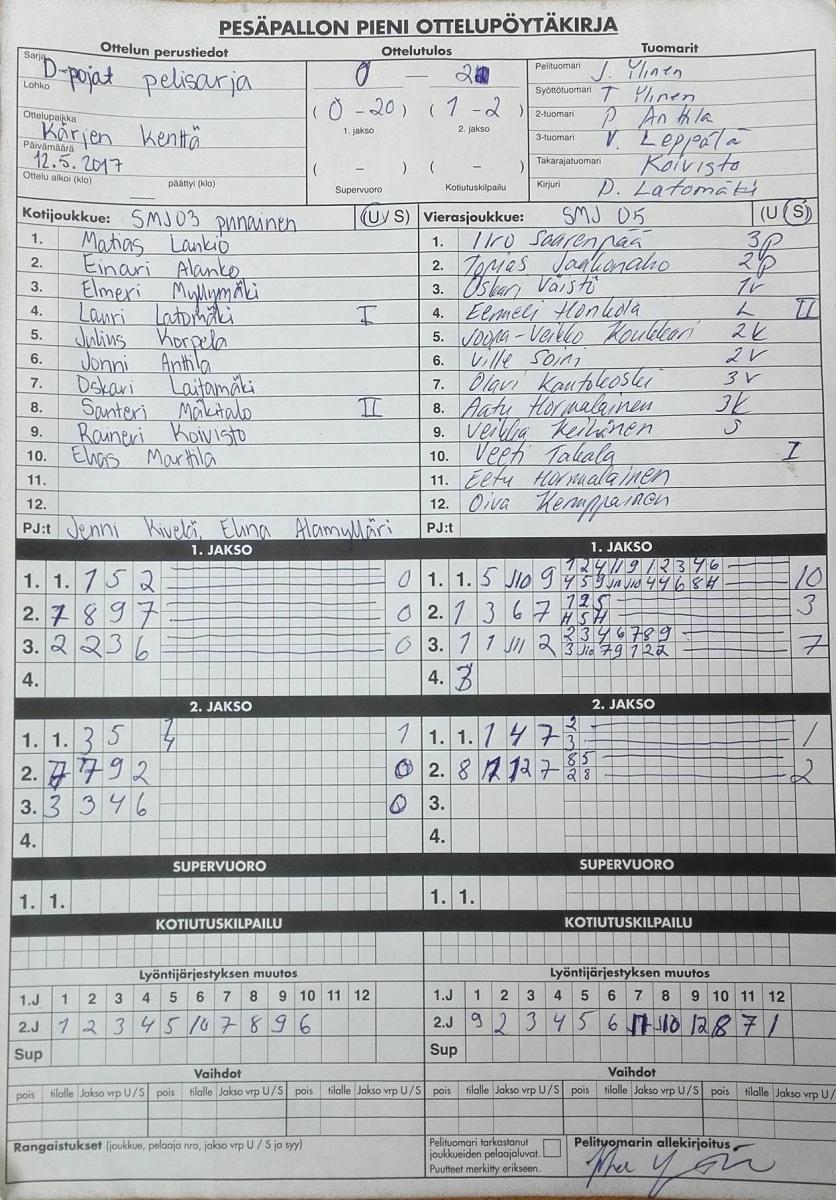 PESÄPALLON PIENI OTTELUPÖYTÄKIRJA
Ottelun perustiedot
Ottelutulos
Tuomarit
Sarja
D-pojat pelisarja
Lohko
Ottelupaikka
Kärjen Kenttä
Päivämäärä
12.5.2017
Ottelu alkoi (klo) päättyi (klo)
0 — 2
( 0 - 20 ) ( 1 - 2 )
1. jakso 2. jakso
( - ) ( - )
Supervuoro Kotiutuskilpailu
Pelituomari J. Ylinen
Syöttötuomari T Ylinen
2-tuomari P Anttila
3-tuomari V. Leppälä
Takarajatuomari Koivisto
Kirjuri D. Latomäki
Kotijoukkue: SMJ03 punainen (U/S)
1. Matias Lankio
2. Einari Alanko
3. Elmeri Myllymäki
4. Lauri Latomäki I
5. Julius Korpela
6. Jonni Anttila
7. Oskari Laitamäki
8. Santeri Mäkitalo II
9. Raineri Koivisto
10. Elias Marttila
11.
12.
PJ:t Jenni Kivelä, Elina Alamylläri
Vierasjoukkue: SMJ 05 (U/S)
1. Iiro Saarenpää 3p
2. Topias Jaakonaho 2p
3. Oskari Väistö 1v
4. Eemeli Honkola L II
5. Joona-Veikko Koukkari 2k
6. Ville Soini 2v
7. Olavi Kantokoski 3v
8. Aatu Hormalainen 3k
9. Veikka Keihänen S
10. Veeti Takala I
11. Eetu Hormalainen
12. Oiva Kemppainen
PJ:t
1. JAKSO
1. 1. 1 5 2 0
2. 7 8 9 7 0
3. 2 2 3 6 0
4.
1. JAKSO
1. 1. 5 10 9 10
2. 1 3 6 7 1 2 5 3
3. 1 1 11 2 2 3 4 6 7 8 9 7
4. 3
2. JAKSO
1. 1. 3 5 1
2. 7 7 9 2 0
3. 3 3 4 6 0
4.
2. JAKSO
1. 1. 1 4 7 2 3 1
2. 8 11 12 7 8 5 2 8 2
3.
4.
SUPERVUORO
1. 1.
SUPERVUORO
1. 1.
KOTIUTUSKILPAILU
KOTIUTUSKILPAILU
Lyöntijärjestyksen muutos
1.J 1 2 3 4 5 6 7 8 9 10 11 12
2.J 1 2 3 4 5 10 7 8 9 6
Sup
Lyöntijärjestyksen muutos
1.J 1 2 3 4 5 6 7 8 9 10 11 12
2.J 9 2 3 4 5 6 11 10 12 8 7 1
Sup
Vaihdot
pois tilalle Jakso vrp U/S pois tilalle Jakso vrp U/S pois tilalle Jakso vrp U/S
Vaihdot
pois tilalle Jakso vrp U/S pois tilalle Jakso vrp U/S pois tilalle Jakso vrp U/
Rangaistukset (joukkue, pelaaja nro, jakso vrp U / S ja syy)
Pelituomari tarkastanut
joukkueiden pelaajaluvat.
Puutteet merkitty erikseen.
Pelituomarin allekirjoitus